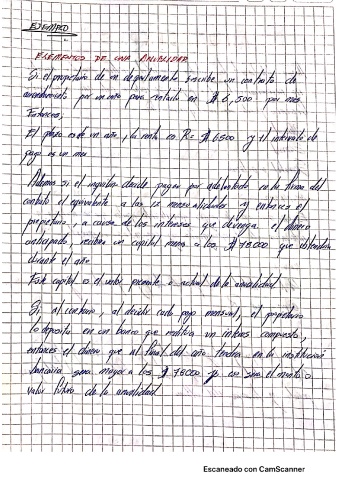 EJEMPLO
ELEMENTOS DE UNA ANUALIDAD
Si el propietario de un departamento suscribe un contrato de
arrendamiento por un año para rentarlo en $6,500 por mes
Entonces,
El plazo es de un año, la renta es R= $6500 y el intervalo de
pago es un mes
Además si el inquilino decide pagar por adelantado en la firma del
contrato el equivalente a las 12 mensualidades y entonces el
propietario, a causa de los intereses que devenga el dinero
anticipado, recibe un capital menor a los $78000 que obtendría
durante el año
Este capital es el valor presente o actual de la anualidad
Si, al contrario, al recibir cada pago mensual, el propietario
lo deposita en un banco que reditúa un interés compuesto,
entonces el dinero que al final del año tendrá en la institución
bancaria será mayor a los $78000 y ese será el monto o
valor futuro de la anualidad
Escaneado con CamScanner